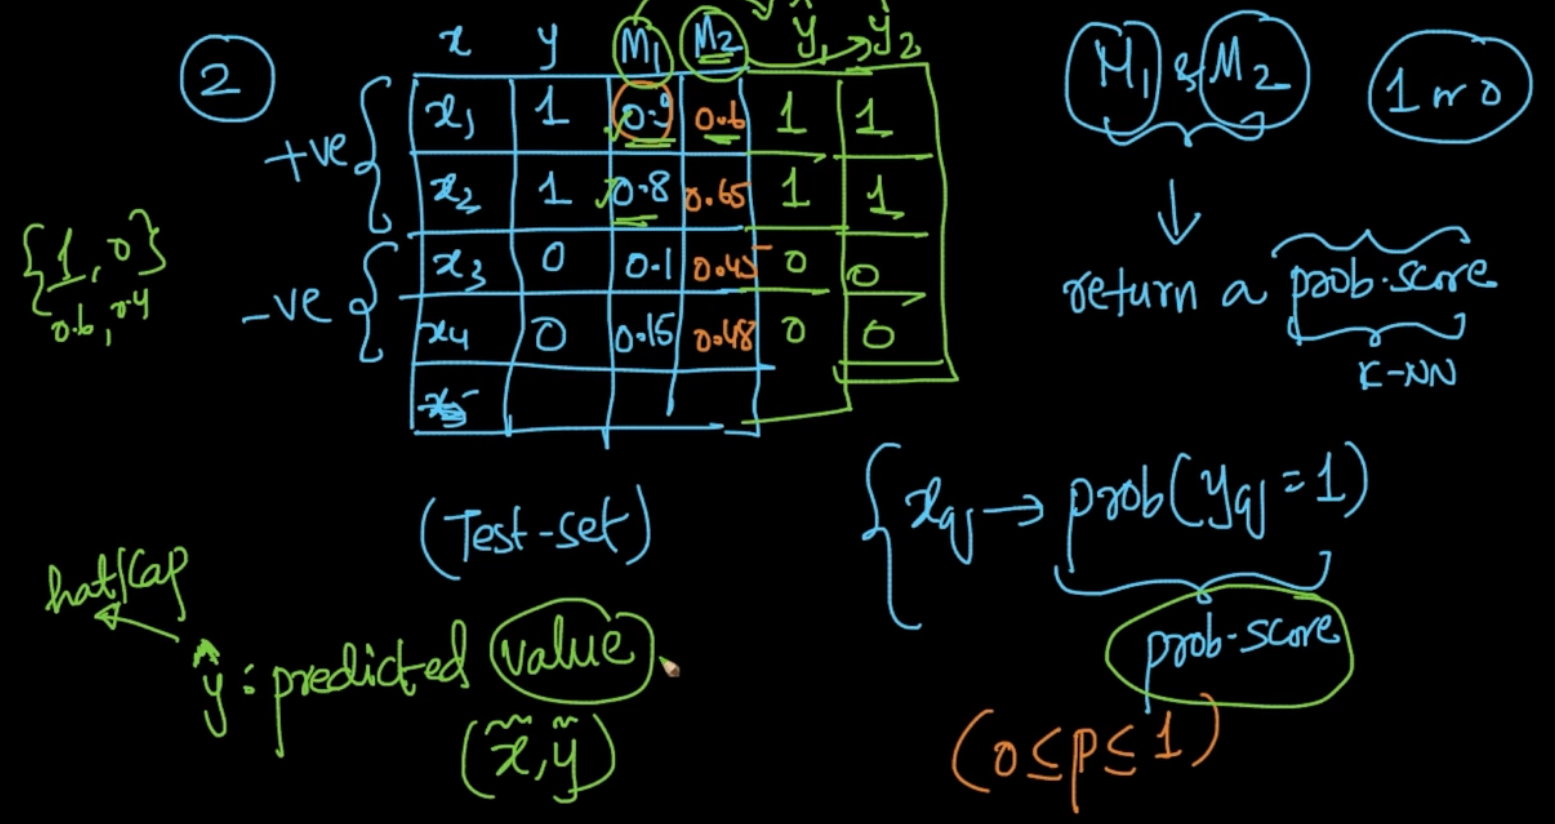 2
x y M₁ M₂ ŷ₁ ŷ₂
+ve
x₁ 1 0.9 0.6 1 1
x₂ 1 0.8 0.65 1 1
-ve
x₃ 0 0.1 0.45 0 0
x₄ 0 0.15 0.48 0 0
{1, 0}
0.6, 0.4
(Test-set)
hat/cap
ŷ : predicted value
(x̃, ỹ)
M₁ & M₂
1 or 0
↓
return a prob.score
K-NN
{ x_q → prob(y_q = 1)
prob-score
(0 ≤ p ≤ 1)